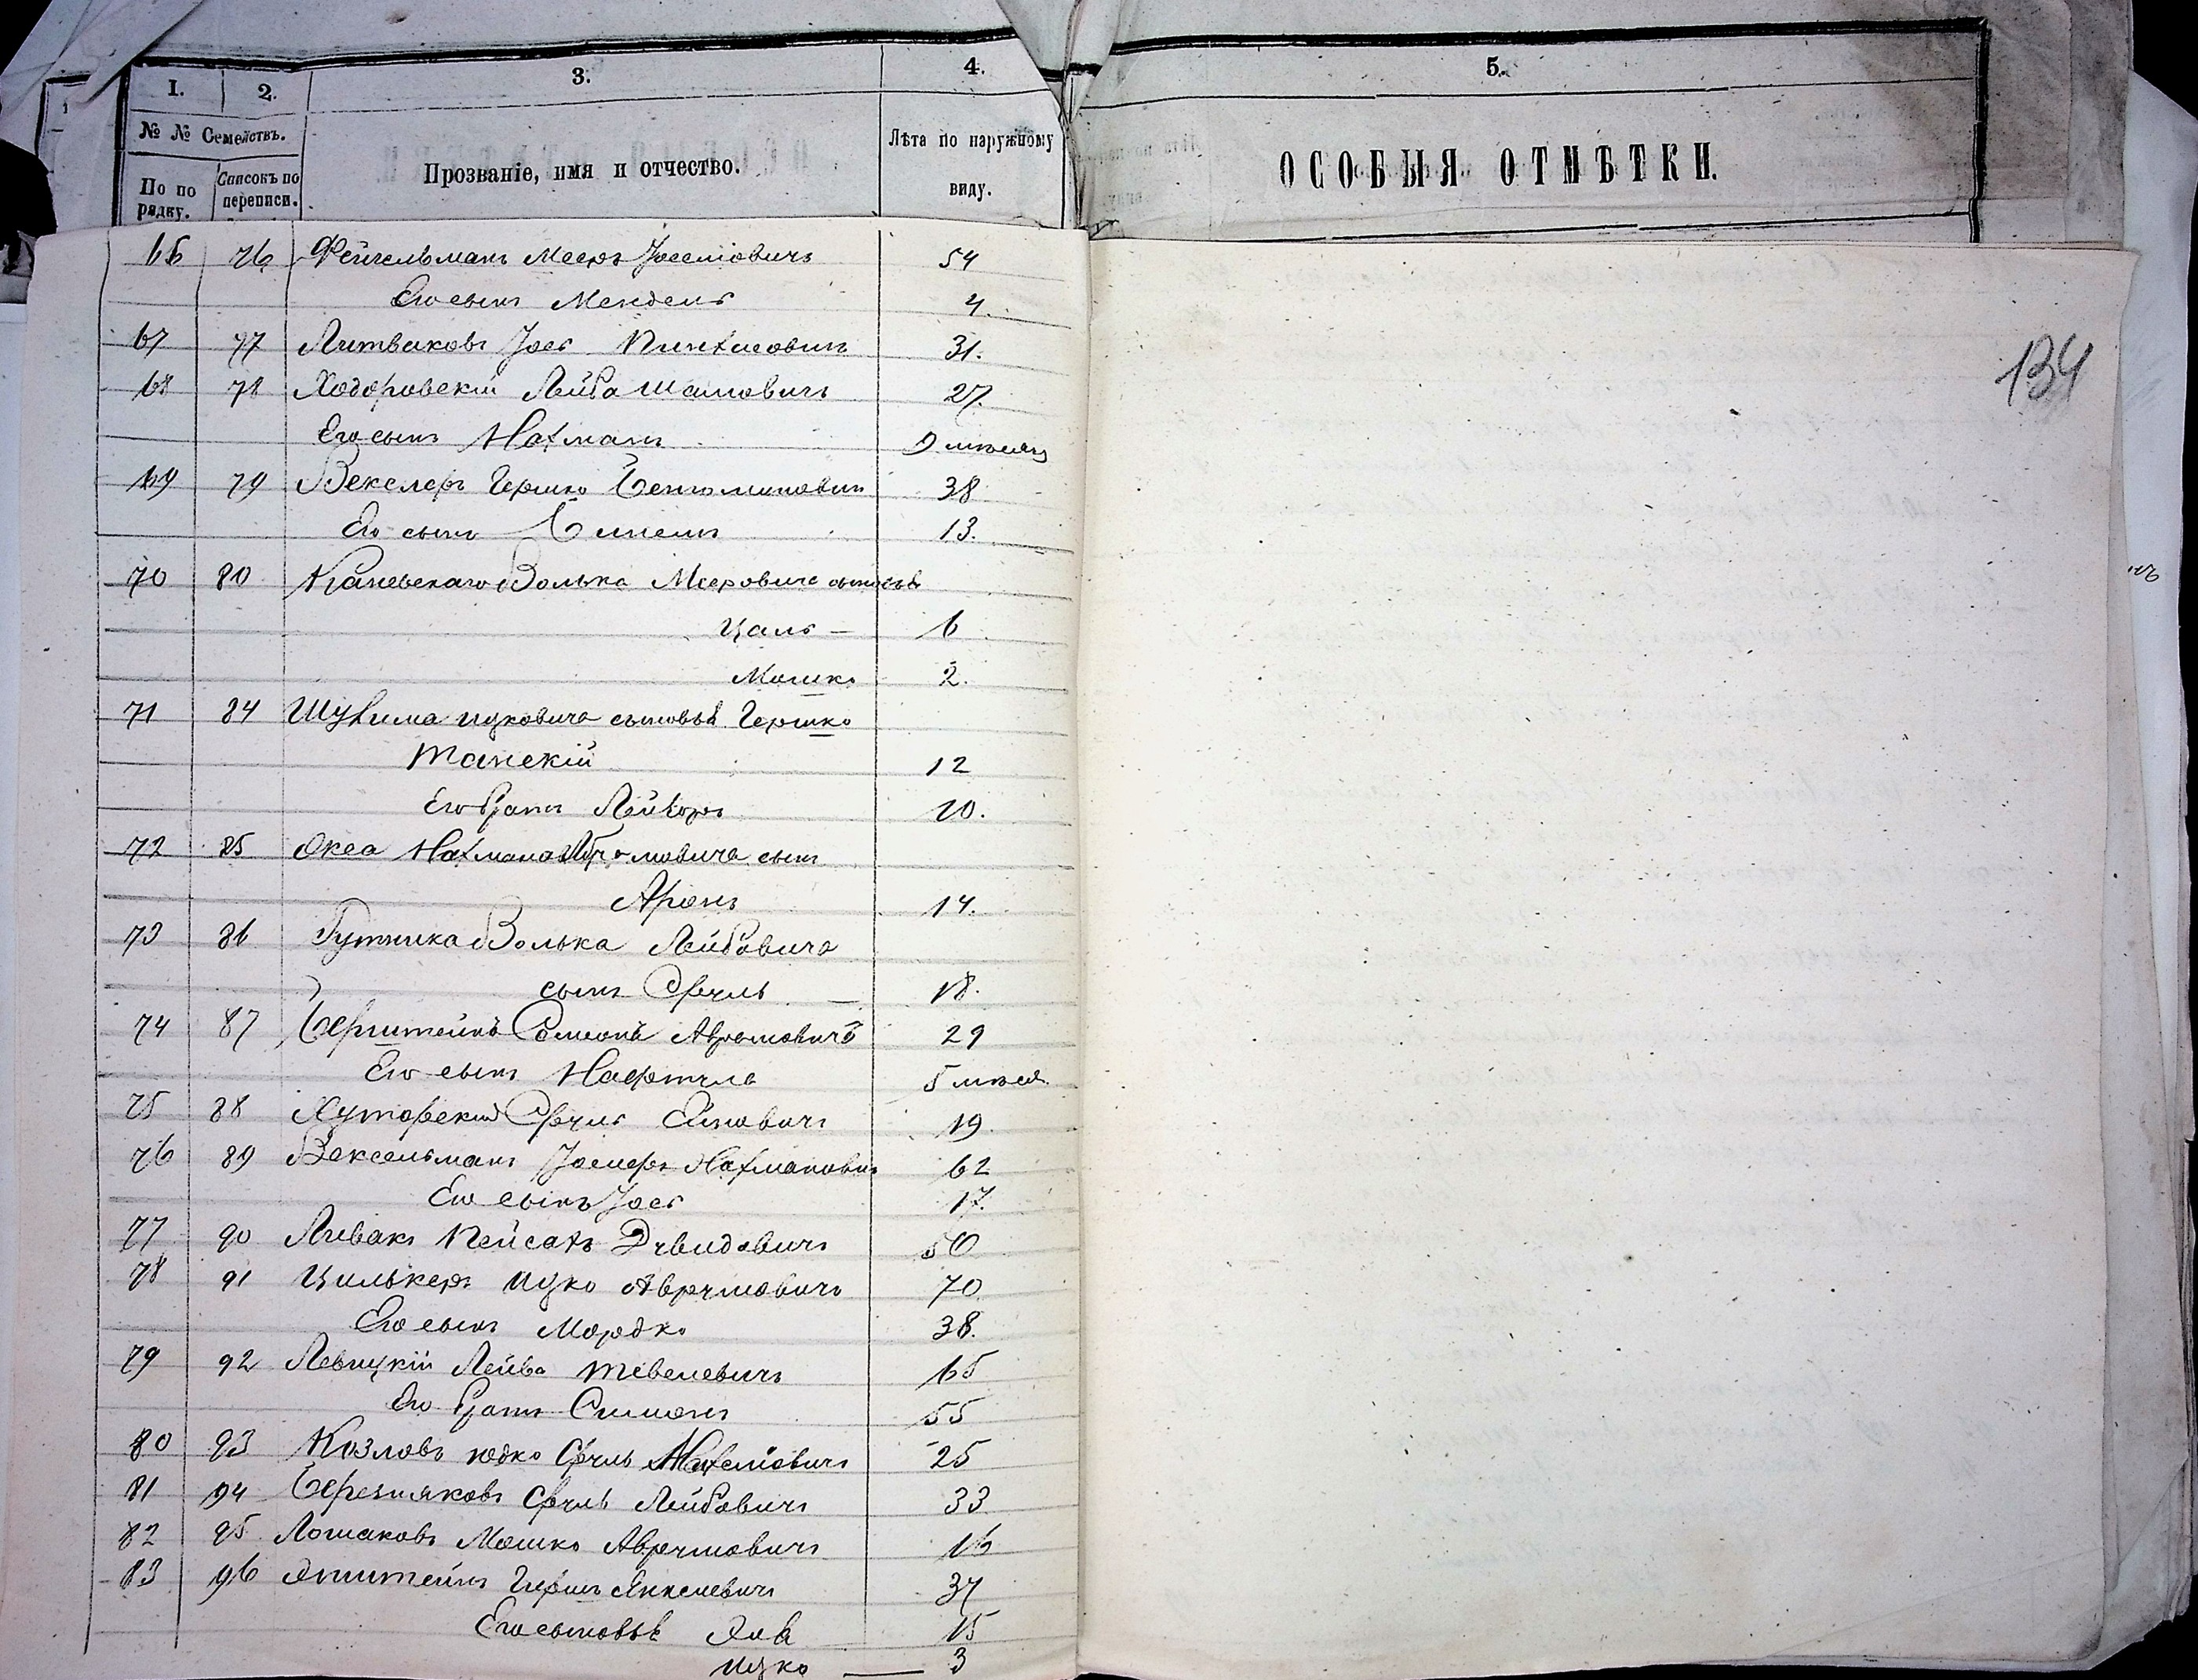 1. 2. 3. 4. 5.
№ № Семействъ.
По по рядку. Списокъ по переписи.
Прозваніе, имя и отчество.
Лѣта по наружному виду.
ОСОБЫЯ ОТМѢТКИ.
134
76 Фейгельманъ Мееръ 54
Его сынъ Мендель 4.
67 77 Литваковъ Іосъ Пинхасовичъ 31.
68 78 Ходоровскій Лейба 27.
Его сынъ Нахманъ
69 79 Векслеръ Гершко Беньоминовичъ 38
Его сынъ 13.
70 80 Каневскаго Волька Мееровича сыновья
Цаль — 6
Мошко 2.
71 84 Ицковича сыновья Гершко
12
Его братъ 10.
72 85 Нахмана сынъ
Аронъ 14.
73 86 Гутника Волька Лейбовича
сынъ Сруль 18.
74 87 Бернштейнъ Аврамовичъ 29
Его сынъ Нафтула 5
75 88 Хуторскій Сруль 19.
76 89 Вексельманъ Іосифъ Нахмановичъ 62
Его сынъ Іосъ 17.
77 90 Ливакъ Пейсахъ Давидовичъ 50
78 91 Цилькеръ Ицко Аврумовичъ 70
Его сынъ Мордко 38.
79 92 Левицкій Лейба Тевелевичъ 65
Его братъ Симонъ 55
80 93 Козловъ Юдко Сруль 25
81 94 Березняковъ Сруль Лейбовичъ 33
82 95 Лошаковъ Мошко Аврумовичъ 16
83 96 Эпштейнъ Гершъ Янкелевичъ 37
Его сыновья 15
Ицко — 3